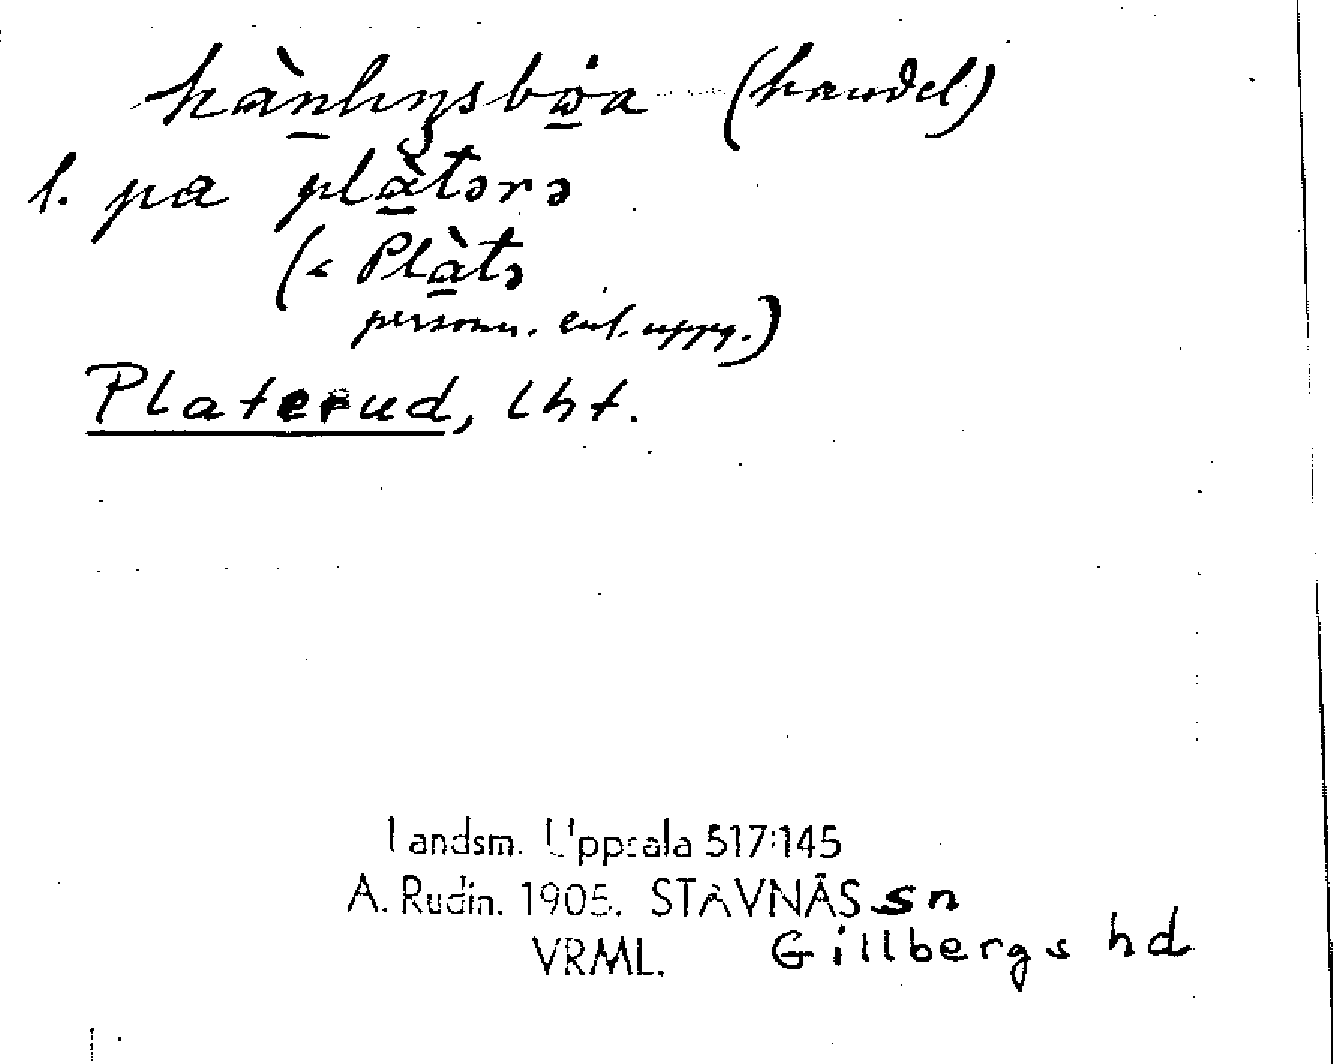 (handel)
l. pa plàtərə
(< Plàtə
personn. enl. uppg.)
Platerud, lht.
Landsm. Uppsala 517:145
A. Rudin. 1905. STAVNÄS sn
VRML. Gillbergs hd